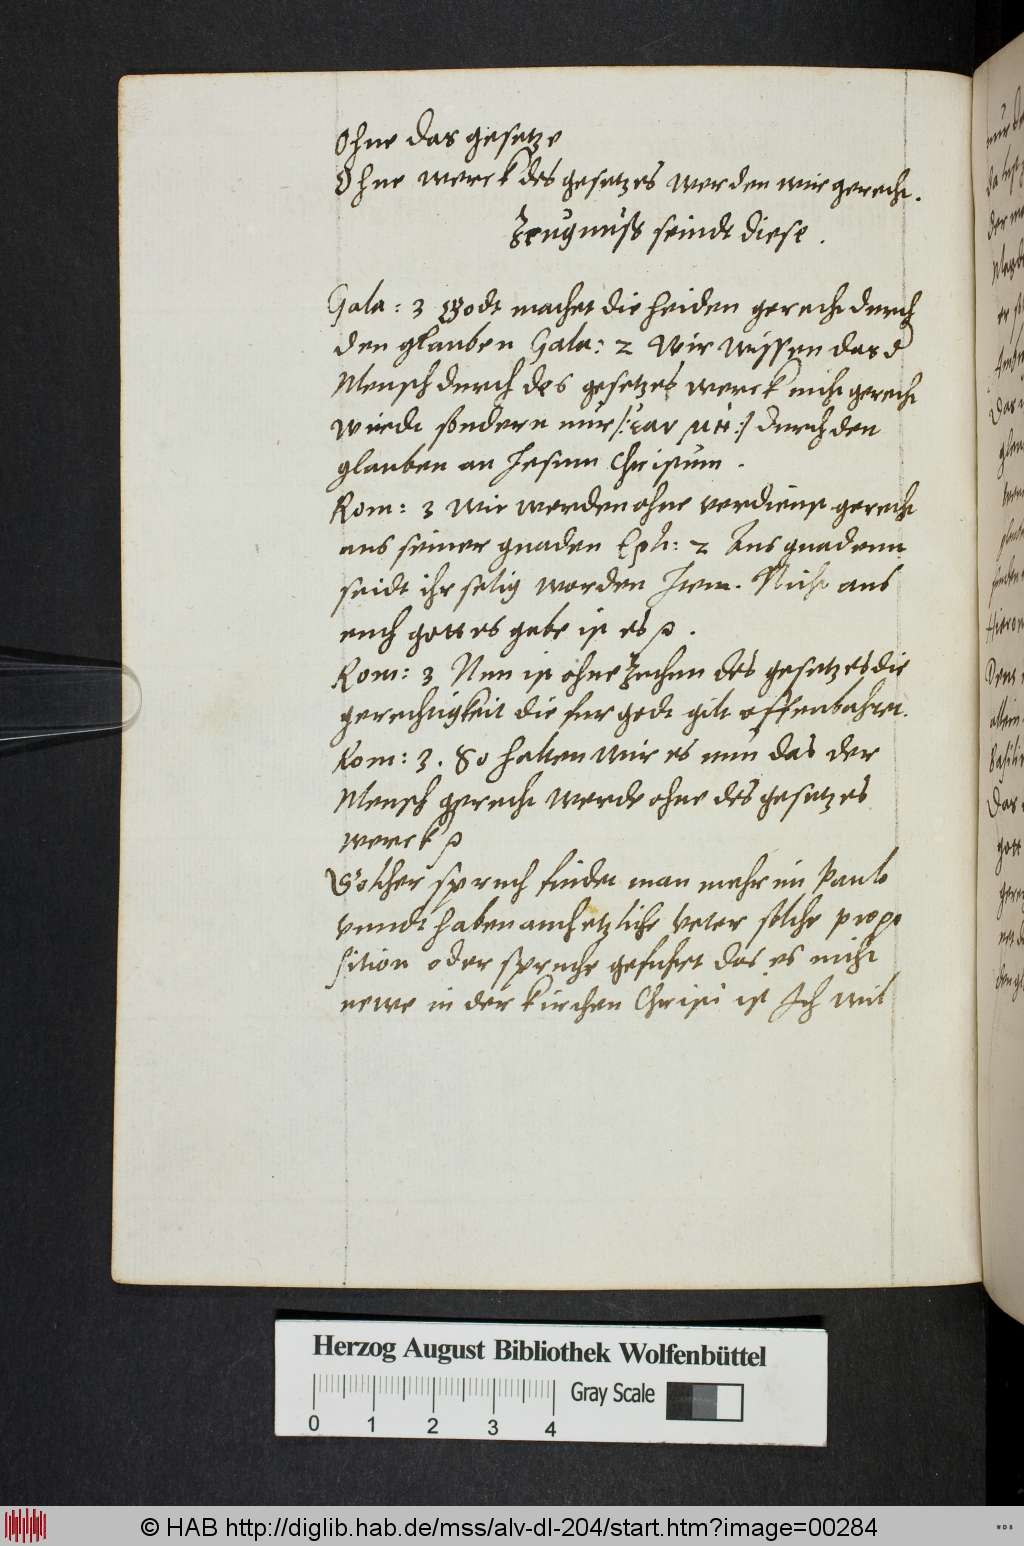 Ohne das gesetze
Ohne werck des gesetzes werden wir gerecht.
Zeugnuß seindt diese.
Gala: 3 Godt machet die heiden gerecht durch
den glauben Gala: 2 Wir wissen das d
Mensch durch des gesetzes werck nicht gerecht
wirdt sondern nur /: ἐαν μὴ :/ durch den
glauben an Jesum Christum.
Rom: 3 Wir werden ohne verdienst gerecht
aus seiner gnaden Eph: 2 Aus gnadenn
seidt ihr selig worden Item. Nicht aus
euch gottes gabe ist es
Rom: 3 Nun ist ohne Zuthun des gesetzes die
gerechtigkeit die fur godt gilt offenbahret.
Rom: 3. So halten wir es nun das der
Mensch gerecht werde ohne des gesetzes
werck
Solcher spruch findet man mehr im Paulo
vnndt haben auch etzliche Veter solche propo
sition oder spruche gefuhret das es nicht
newe in der kirchen Christi ist Ich wil
nur
der
Das
Hieron
allein
Das
gott
Herzog August Bibliothek Wolfenbüttel
Gray Scale
0 1 2 3 4
© HAB http://diglib.hab.de/mss/alv-dl-204/start.htm?image=00284